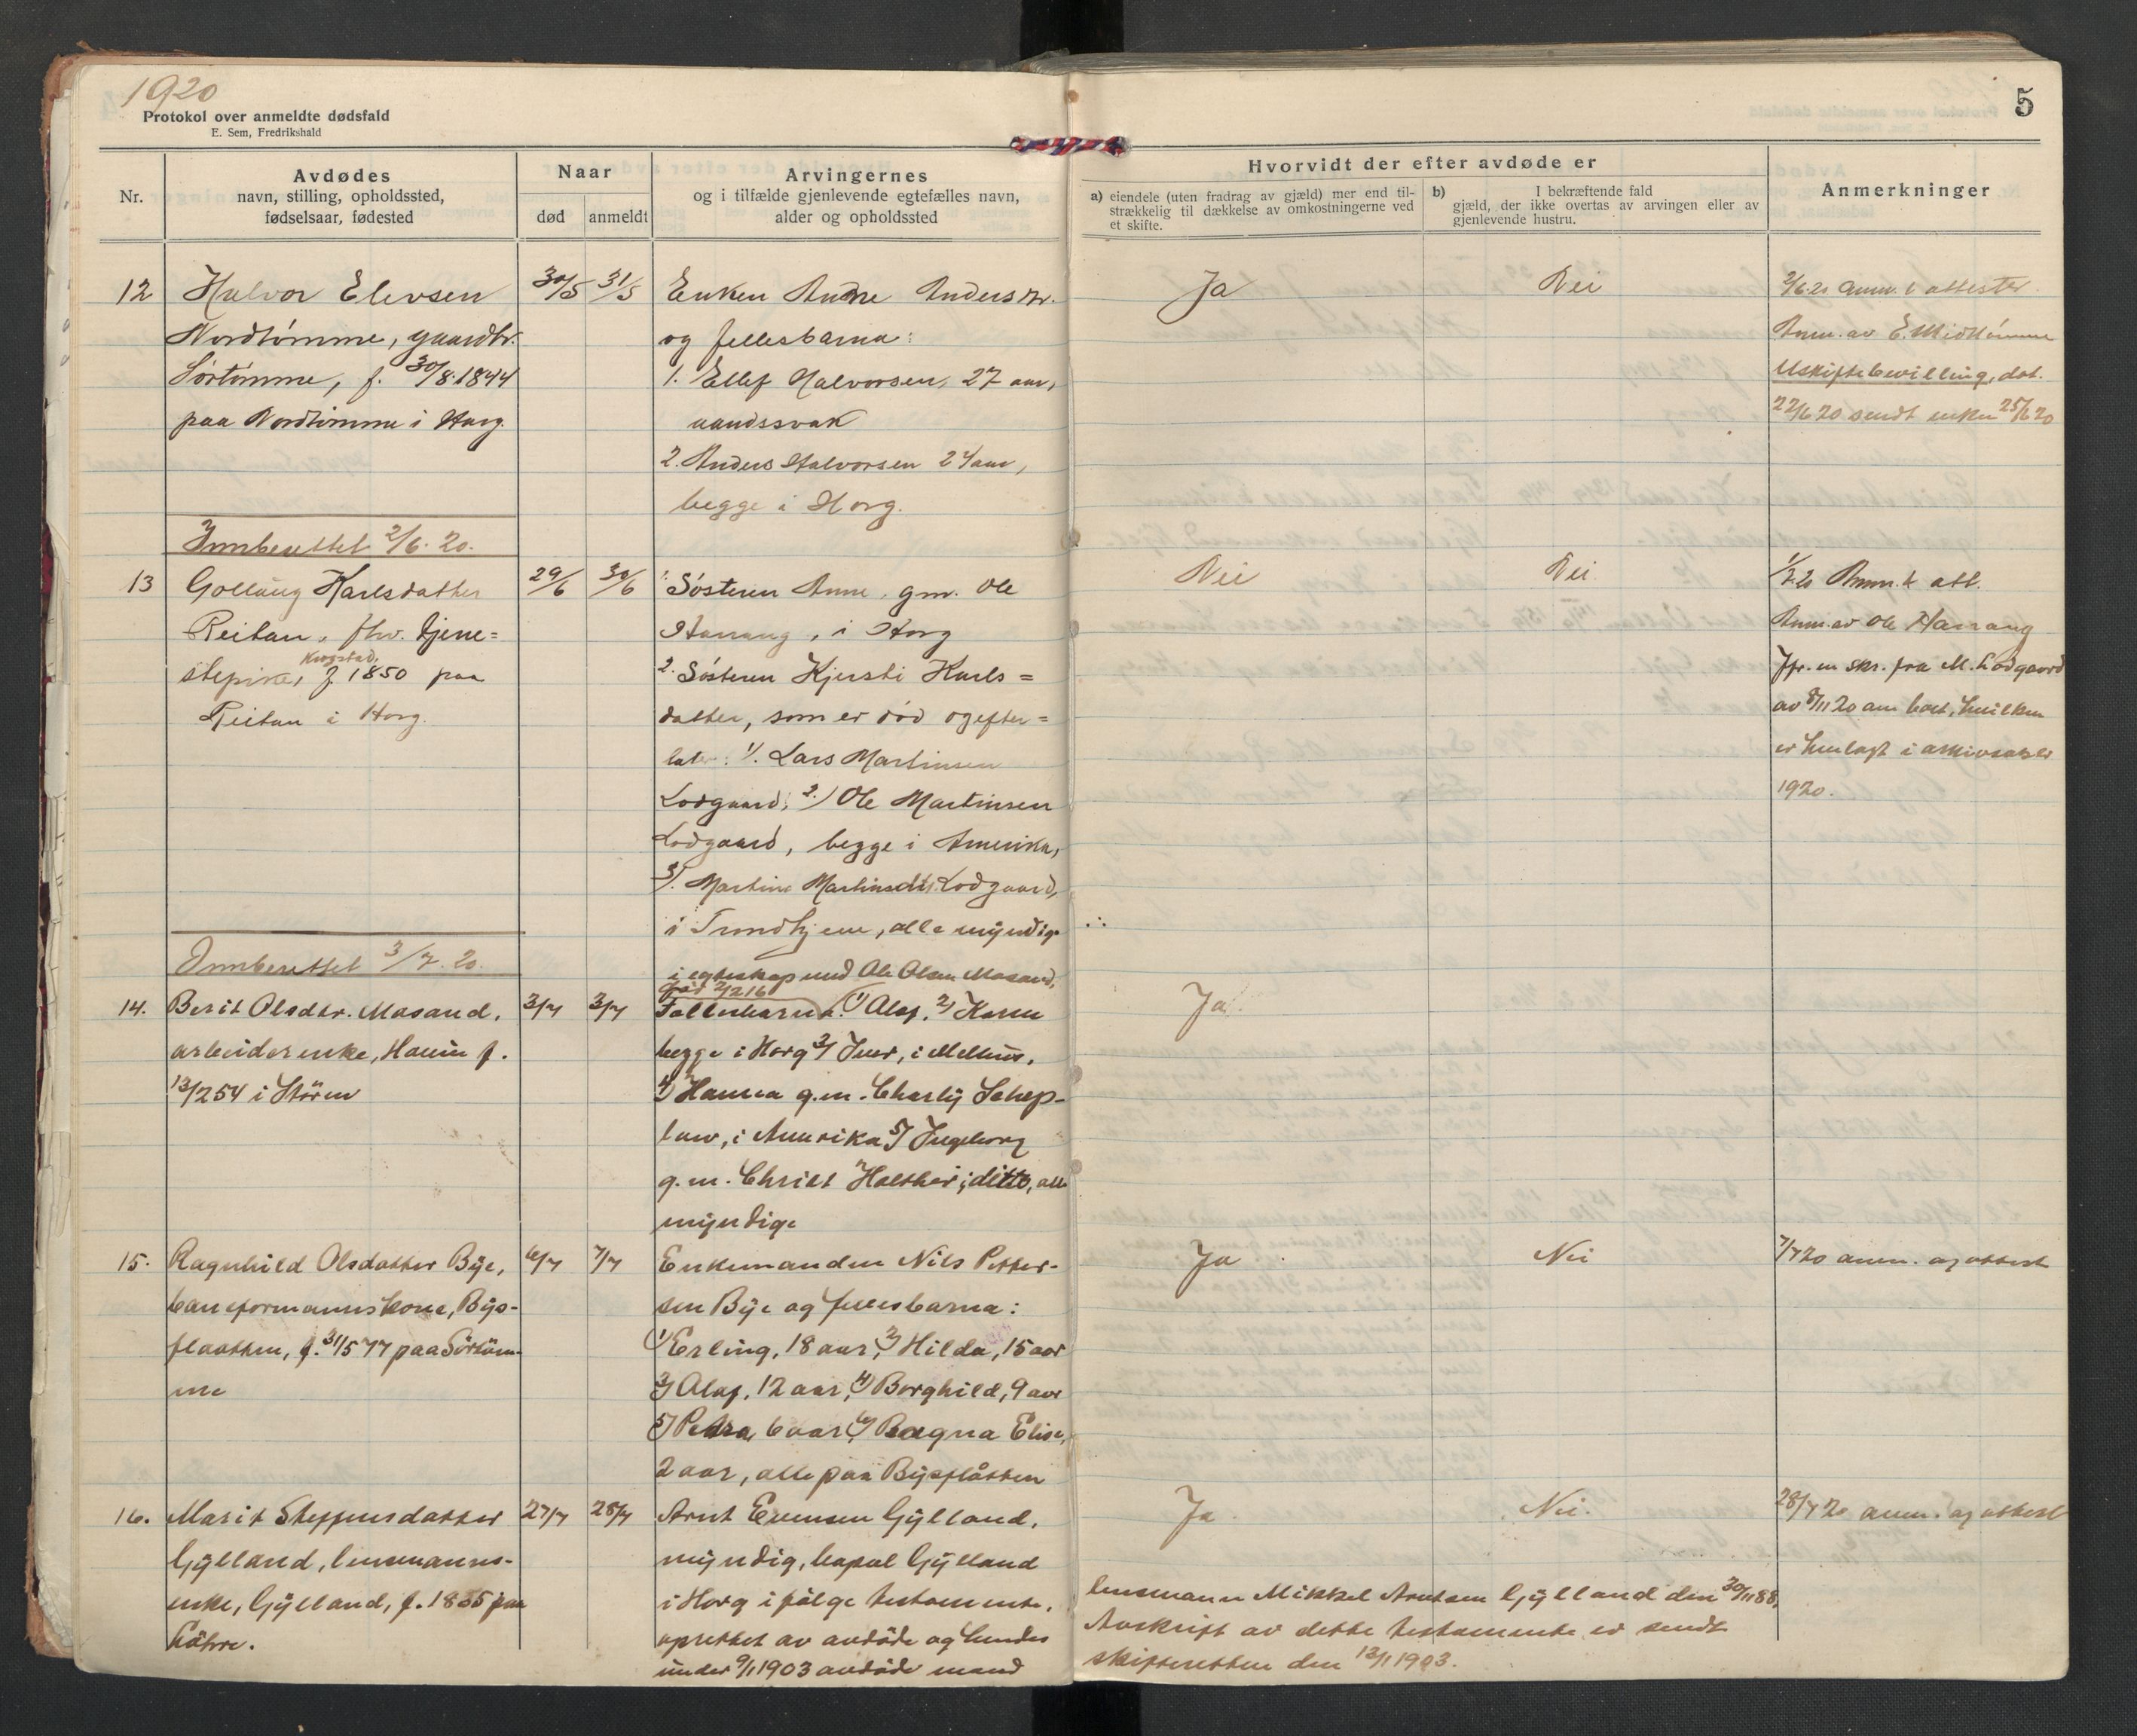 1920
Protokol over anmeldte dødsfald
E. Sem, Fredrikshald
5
Nr.
Avdødes
navn, stilling, opholdssted,
fødselsaar, fødested
Naar
død
anmeldt
Arvingernes
og i tilfælde gjenlevende egtefælles navn,
alder og opholdssted
Hvorvidt der efter avdøde er
a) eiendele (uten fradrag av gjæld) mer end til-
strækkelig til dækkelse av omkostningerne ved
et skifte.
b) I bekræftende fald
gjæld, der ikke overtas av arvingen eller av
gjenlevende hustru.
Anmerkninger
12
Halvor Elevsen
Nordtømme, gaardbr.
Sørtømme, f. 30/8.1844
paa Nordtømme i Horg.
30/5
31/5
Enken Anne Andersdr.
og fellesbarna:
1. Ellef Halvorsen, 27 aar,
aandssvak
2. Anders Halvorsen 24 aar,
begge i Horg.
Ja
Nei
2/6.20 anm. & attester
Anm. av E. Midttømme
Uskiftebevilling, dat.
22/6 20 sendt enken 25/6 20
Innberettet 2/6. 20.
13
Gollaug Karlsdatter
Reitan, fhv. tjene=
stepike, Krogstad, f 1850 paa
Reitan i Horg.
29/6
30/6
1. Søsteren Anne, gm. Ole
Harrang, i Horg
2. Søsteren Kjersti Karls=
datter, som er død og efter=
later: 1/. Lars Martinsen
Lodgaard; 2./ Ole Martinsen
Lodgaard, begge i Amerika,
3/. Martine Martinsdtr. Lodgaard,
i Trondhjem, alle myndige
Nei
Nei.
Anm. & att.
Anm. av Ole Harrang
Jfr. en skr. fra M. Lodgaard
av 8/11 20 om boet, hvilken
er henlagt i arkivsaker
1920.
Innberettet 3/7. 20.
14.
Berit Olsdtr. Mosand,
arbeiderenke, Hovin f.
13/2 54 i Støren
3/7
3/7
i egteskap med Ole Olsen Mosand,
død 2/2 16
Fællesbarna: 1) Olaf, 2) Karen
begge i Horg 3) Iver, i Melhus,
4) Hanna g.m. Charly Schep-
law, i Amerika 5) Ingeborg
g.m. Christ Holther; ditto, alle
myndige
Ja.
15.
Ragnhild Olsdatter Bye,
baneformannskone, Bys-
flaatten, f. 31/5 77 paa Sörtöm-
me
6/7
7/7
Enkemanden Nils Petter-
sen Bye og fellesbarna:
1) Erling, 18 aar, 2) Hilda, 15 aar
3) Olaf, 12 aar, 4) Borghild, 9 aar
5) Petra 6 aar, 6) Ragna Elise,
2 aar, alle paa Bysflåtten
Ja
Nei
7/7 20 anm. og attest
16.
Marit Steffensdatter
Gylland, lensmanns-
enke, Gylland, f. 1835 paa
27/7
28/7
Arnt Evensen Gylland,
myndig, bopæl Gylland
i Horg ifølge testamente,
oprettet av avdøde og hendes
under 9/1 1903 avdøde mand
Ja.
Nei.
28/7 20 anm. og attest
lensmann Mikkel Arntsen Gylland den 30/11 88.
Avskrift av dette testamente er sendt
skifteretten den 13/1 1903.